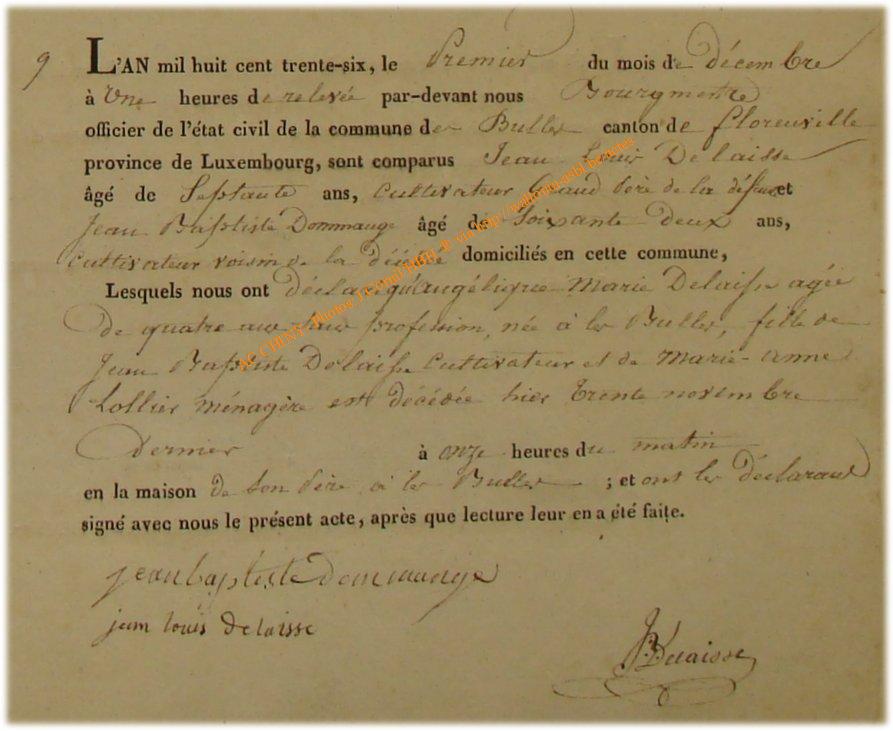 9
L'AN mil huit cent trente-six, le Premier du mois de décembre
à Une heures de relevée par-devant nous Bourgmestre
officier de l'état civil de la commune des Bulles canton de florenville
province de Luxembourg, sont comparus Jean Louis Delaisse
âgé de Septante ans, cultivateur Grand Père de la défunte et
Jean Baptiste Dommange âgé de Soixante deux ans,
cultivateur voisin de la décédée domiciliés en cette commune,
Lesquels nous ont déclaré qu'angélique Marie Delaisse agée
de quatre ans sans profession, née à les Bulles, fille de
Jean Baptiste Delaisse cultivateur et de Marie-anne
Lollier ménagère est décédée hier trente novembre
dernier à onze heures du matin
en la maison de son Père à les Bulles ; et ont les déclarans
signé avec nous le présent acte, après que lecture leur en a été faite.
jean baptiste dommange
jean louis delaisse
JBDelaisse